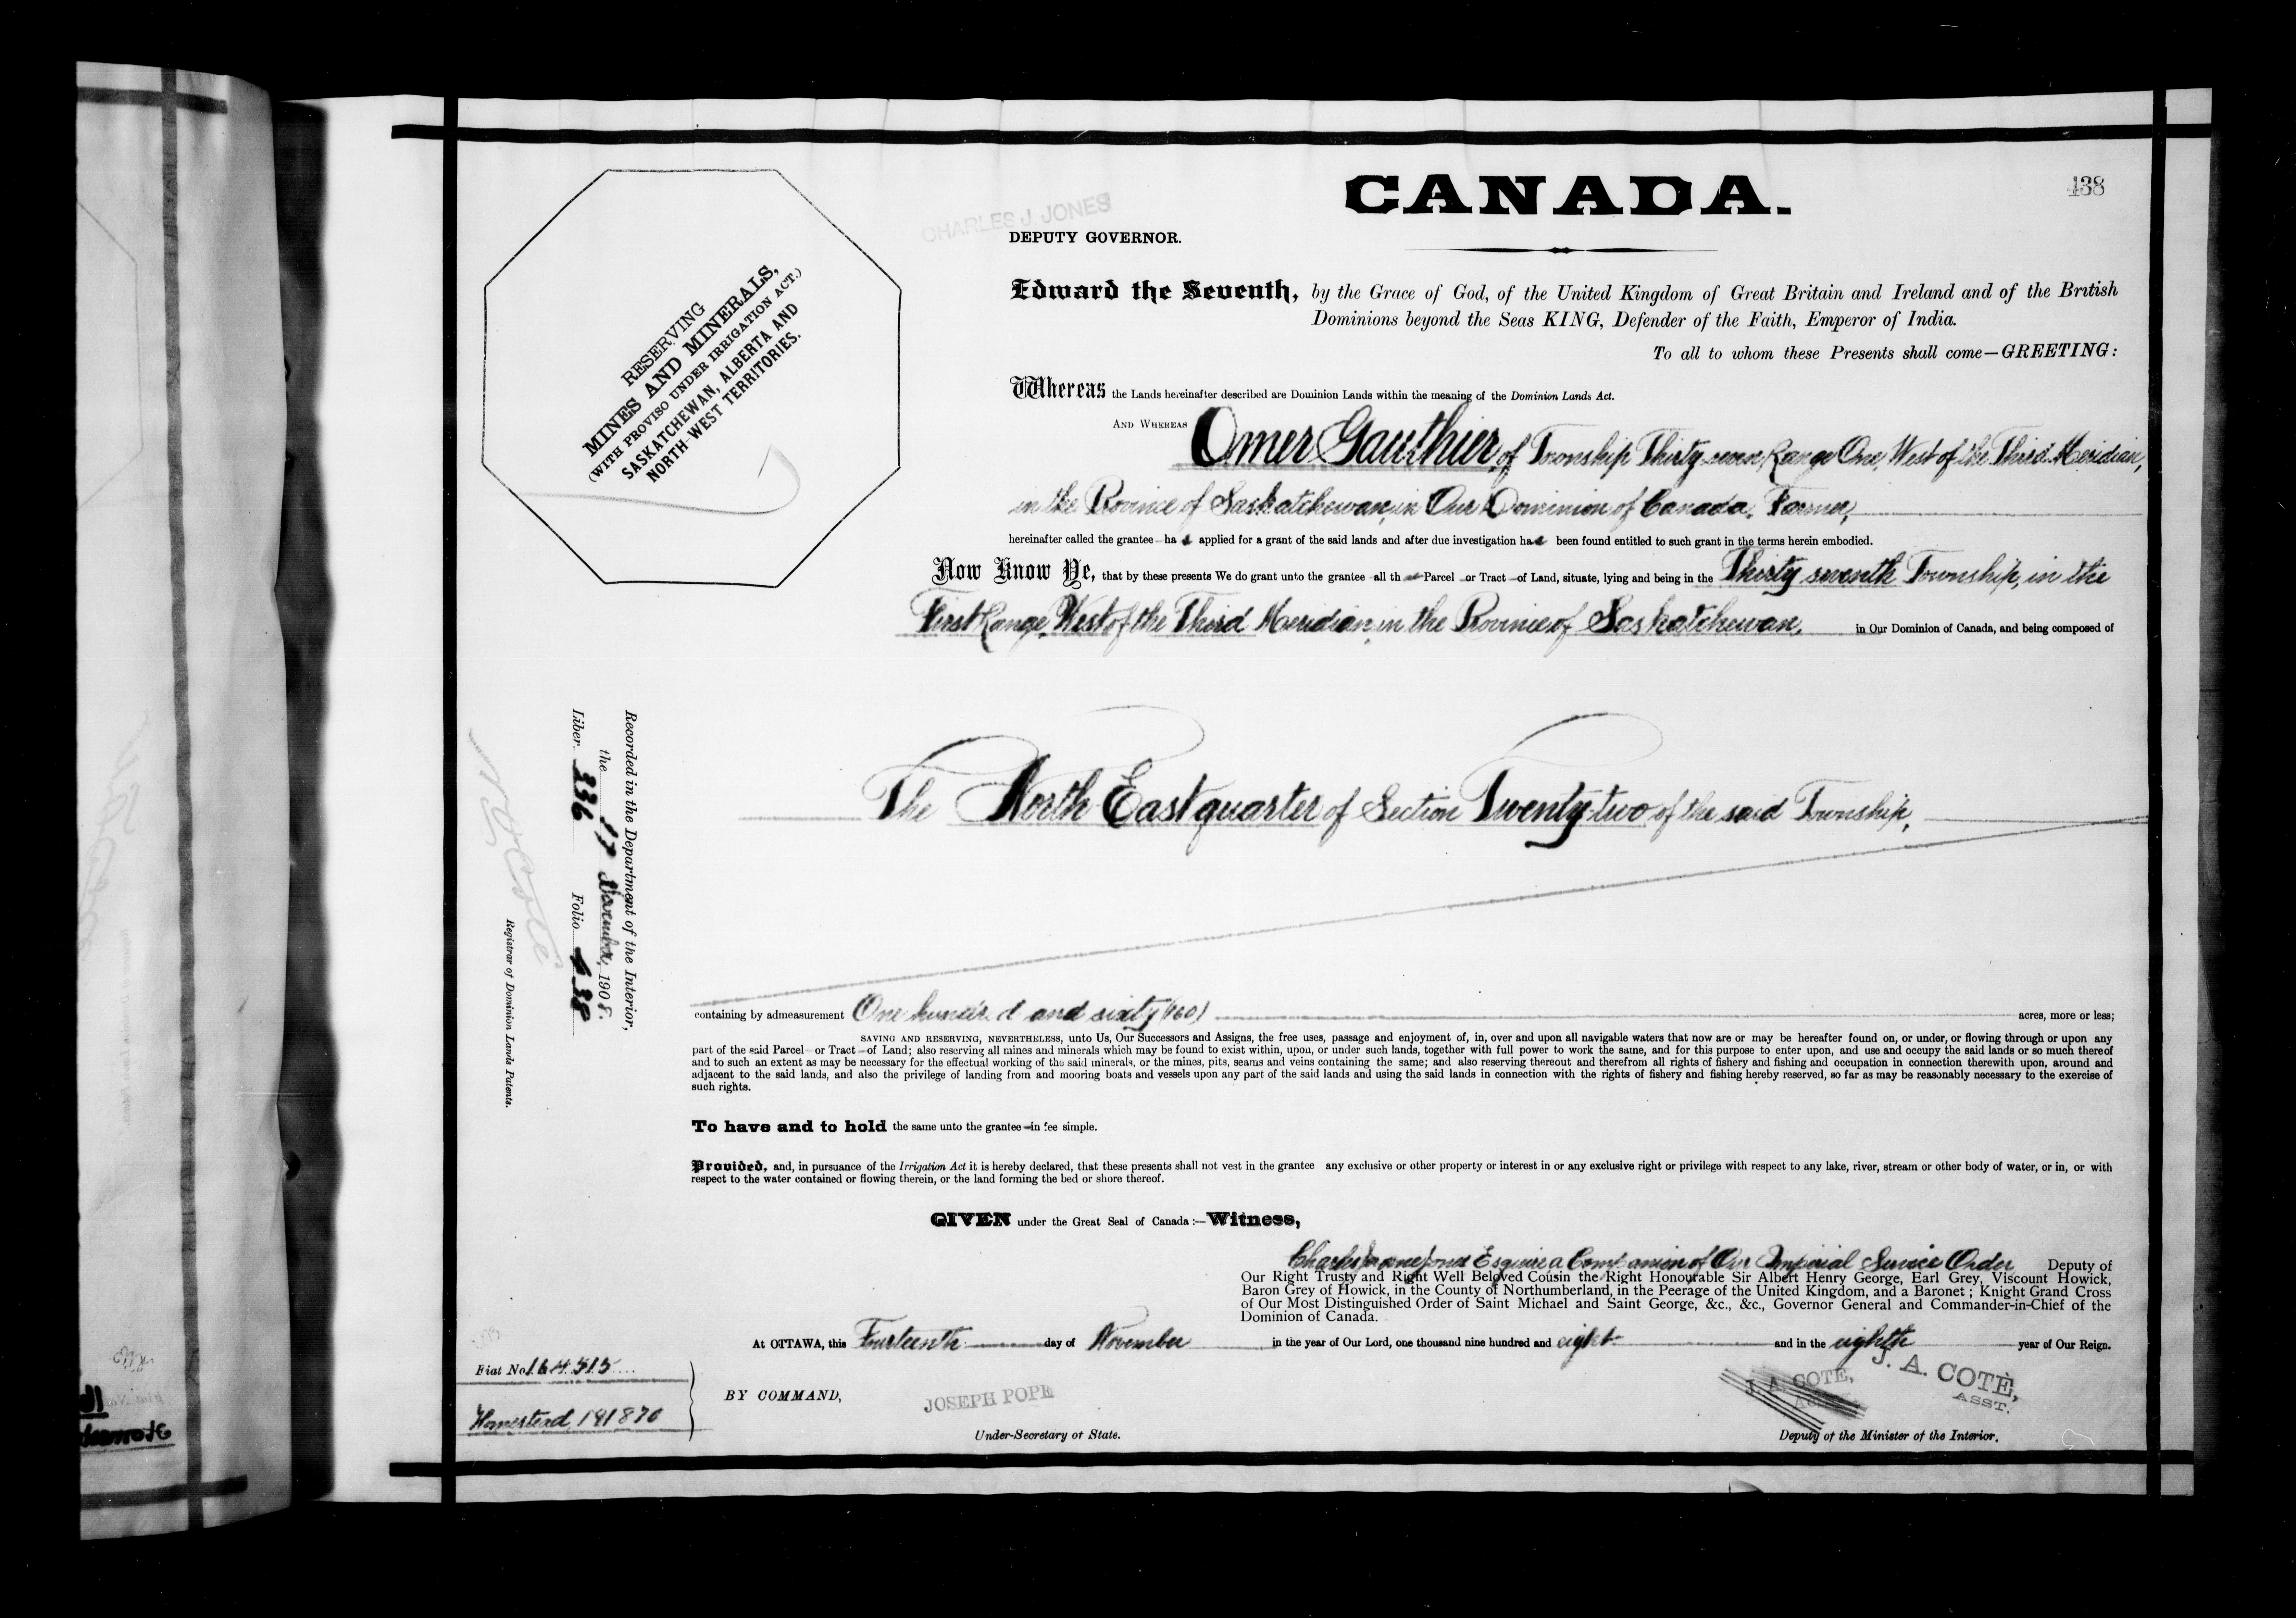 CANADA.
438
CHARLES J JONES
DEPUTY GOVERNOR.
RESERVING
MINES AND MINERALS,
(WITH PROVISO UNDER IRRIGATION ACT.)
SASKATCHEWAN, ALBERTA AND
NORTH-WEST TERRITORIES.
Edward the Seventh, by the Grace of God, of the United Kingdom of Great Britain and Ireland and of the British
Dominions beyond the Seas KING, Defender of the Faith, Emperor of India.
To all to whom these Presents shall come—GREETING:
Whereas the Lands hereinafter described are Dominion Lands within the meaning of the Dominion Lands Act.
AND WHEREAS Omer Gauthier, of Township Thirty seven Range One, West of the Third Meridian,
in the Province of Saskatchewan, in Our Dominion of Canada, Farmer,
hereinafter called the grantee ha s applied for a grant of the said lands and after due investigation has been found entitled to such grant in the terms herein embodied.
Now Know Ye, that by these presents We do grant unto the grantee all that Parcel or Tract of Land, situate, lying and being in the Thirty seventh Township, in the
First Range, West of the Third Meridian, in the Province of Saskatchewan, in Our Dominion of Canada, and being composed of
The North East quarter of Section Twenty-two of the said Township,
Recorded in the Department of the Interior,
the 17 November, 1908.
Liber 336 Folio 438
Registrar of Dominion Lands Patents.
containing by admeasurement One hundred and sixty (160) acres, more or less;
SAVING AND RESERVING, NEVERTHELESS, unto Us, Our Successors and Assigns, the free uses, passage and enjoyment of, in, over and upon all navigable waters that now are or may be hereafter found on, or under, or flowing through or upon any
part of the said Parcel or Tract of Land; also reserving all mines and minerals which may be found to exist within, upon, or under such lands, together with full power to work the same, and for this purpose to enter upon, and use and occupy the said lands or so much thereof
and to such an extent as may be necessary for the effectual working of the said minerals, or the mines, pits, seams and veins containing the same; and also reserving thereout and therefrom all rights of fishery and fishing and occupation in connection therewith upon, around and
adjacent to the said lands, and also the privilege of landing from and mooring boats and vessels upon any part of the said lands and using the said lands in connection with the rights of fishery and fishing hereby reserved, so far as may be reasonably necessary to the exercise of
such rights.
To have and to hold the same unto the grantee in fee simple.
Provided, and, in pursuance of the Irrigation Act it is hereby declared, that these presents shall not vest in the grantee any exclusive or other property or interest in or any exclusive right or privilege with respect to any lake, river, stream or other body of water, or in, or with
respect to the water contained or flowing therein, or the land forming the bed or shore thereof.
GIVEN under the Great Seal of Canada:—Witness,
Charles Jones Esquire a Companion of Our Imperial Service Order Deputy of
Our Right Trusty and Right Well Beloved Cousin the Right Honourable Sir Albert Henry George, Earl Grey, Viscount Howick,
Baron Grey of Howick, in the County of Northumberland, in the Peerage of the United Kingdom, and a Baronet; Knight Grand Cross
of Our Most Distinguished Order of Saint Michael and Saint George, &c., &c., Governor General and Commander-in-Chief of the
Dominion of Canada.
At OTTAWA, this Fourteenth day of November in the year of Our Lord, one thousand nine hundred and eight and in the eighth year of Our Reign.
Fiat No 164515
Homestead 191870
BY COMMAND,
JOSEPH POPE
Under-Secretary of State.
J. A. COTE,
J. A. COTÈ,
ASST.
Deputy of the Minister of the Interior.